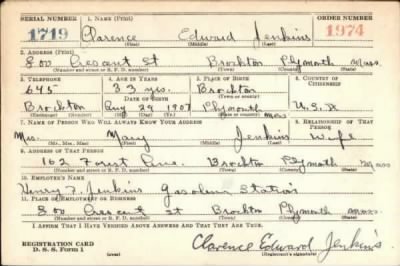 SERIAL NUMBER 1. NAME (Print) ORDER NUMBER
1719 Clarence Edward Jenkins 1974
(First) (Middle) (Last)
2. ADDRESS (Print)
800 Crescent St Brockton Plymouth Mass
(Number and street or R. F. D. number) (Town) (County) (State)
3. TELEPHONE 4. AGE IN YEARS 5. PLACE OF BIRTH 6. COUNTRY OF CITIZENSHIP
645 33 yrs. Brockton
DATE OF BIRTH (Town or county)
Brockton Aug 29 1907 Plymouth Mass U.S.A
(Exchange) (Number) (Mo.) (Day) (Yr.) (State or country)
7. NAME OF PERSON WHO WILL ALWAYS KNOW YOUR ADDRESS 8. RELATIONSHIP OF THAT PERSON
Mrs. Mary Jenkins Wife
(Mr., Mrs., Miss) (First) (Middle) (Last)
9. ADDRESS OF THAT PERSON
162 Forest Ave. Brockton Plymouth Mass
(Number and street or R. F. D. number) (Town) (County) (State)
10. EMPLOYER'S NAME
Henry F. Jenkins Gasolene Station
11. PLACE OF EMPLOYMENT OR BUSINESS
800 Crescent St Brockton Plymouth Mass.
(Number and street or R. F. D. number) (Town) (County) (State)
I AFFIRM THAT I HAVE VERIFIED ABOVE ANSWERS AND THAT THEY ARE TRUE.
REGISTRATION CARD
D. S. S. Form 1 (over) Clarence Edward Jenkins
(Registrant's signature)